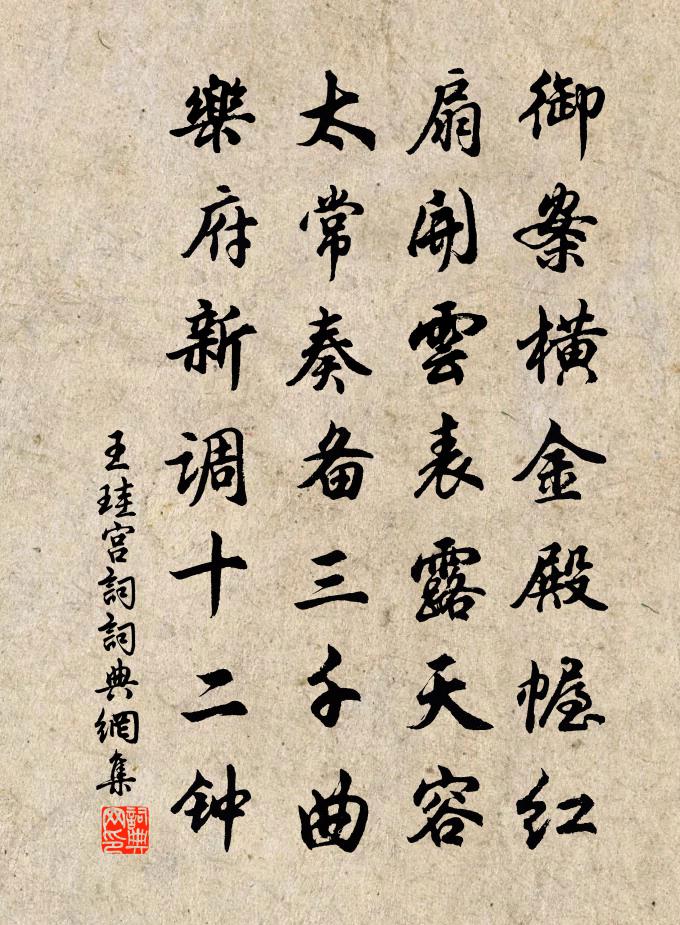 御案橫金殿幄红
扇開雲表露天容
太常奏备三千曲
樂府新调十二钟
王珪宫詞詞典網集
詞典网印